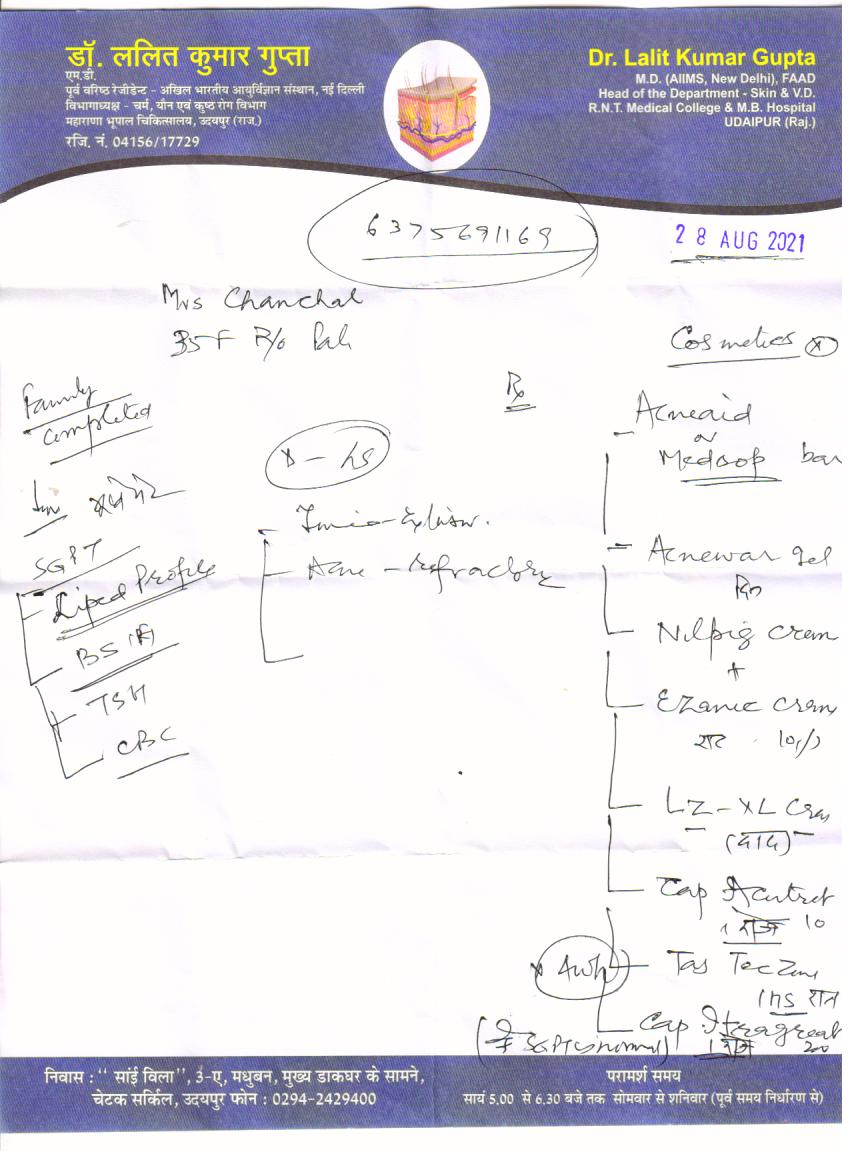 डॉ. ललित कुमार गुप्ता
एम.डी.
पूर्व वरिष्ठ रेजीडेन्ट - अखिल भारतीय आयुर्विज्ञान संस्थान, नई दिल्ली
विभागाध्यक्ष - चर्म, यौन एवं कुष्ठ रोग विभाग
महाराणा भूपाल चिकित्सालय, उदयपुर (राज.)
रजि. नं. 04156/17729
Dr. Lalit Kumar Gupta
M.D. (AIIMS, New Delhi), FAAD
Head of the Department - Skin & V.D.
R.N.T. Medical College & M.B. Hospital
UDAIPUR (Raj.)
6375691169
28 AUG 2021
Mrs Chanchal
35 F R/o Pali
Cosmetics (x)
Family
completed
SGPT
Lipid Profile
BS (F)
TSH
CBC
Acne - refractory
Rx
Acneaid
or
Medsop bar
Acnewar gel
Nilpig Crem
+
EZanic Crem
रात
LZ-XL Crem
(बाद)
Cap Acutret
1 रोज 10
4wk
1 HS रात
Cap Itragreat
1 रोज 200
निवास : " सांई विला", 3-ए, मधुबन, मुख्य डाकघर के सामने,
चेटक सर्किल, उदयपुर फोन : 0294-2429400
परामर्श समय
सायं 5.00 से 6.30 बजे तक सोमवार से शनिवार (पूर्व समय निर्धारण से)